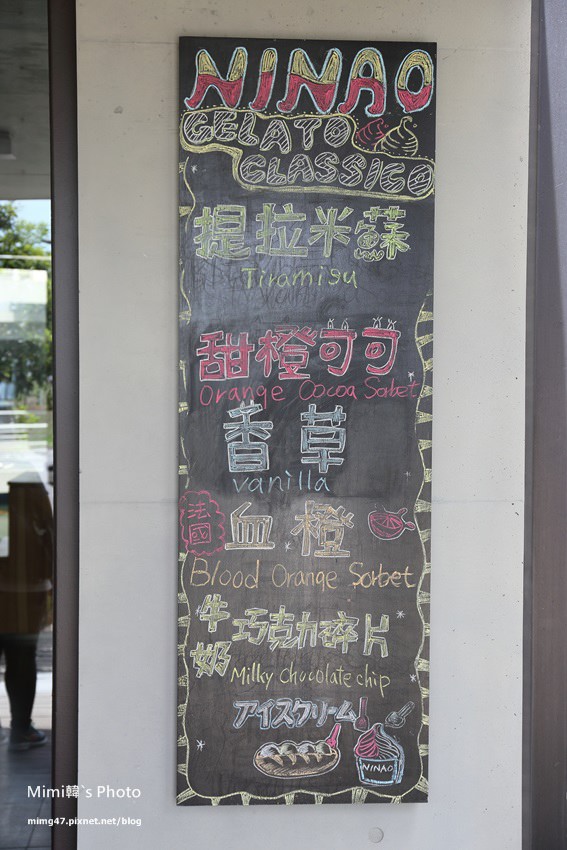 NINAO
GELATO
CLASSICO
提拉米蘇
Tiramisu
甜橙可可
Orange Cocoa Sorbet
香草
vanilla
法國
血橙
Blood Orange Sorbet
牛奶
巧克力碎片
Milky chocolate chip
アイスクリーム
NINAO
Mimi韓`s Photo
mimg47.pixnet.net/blog